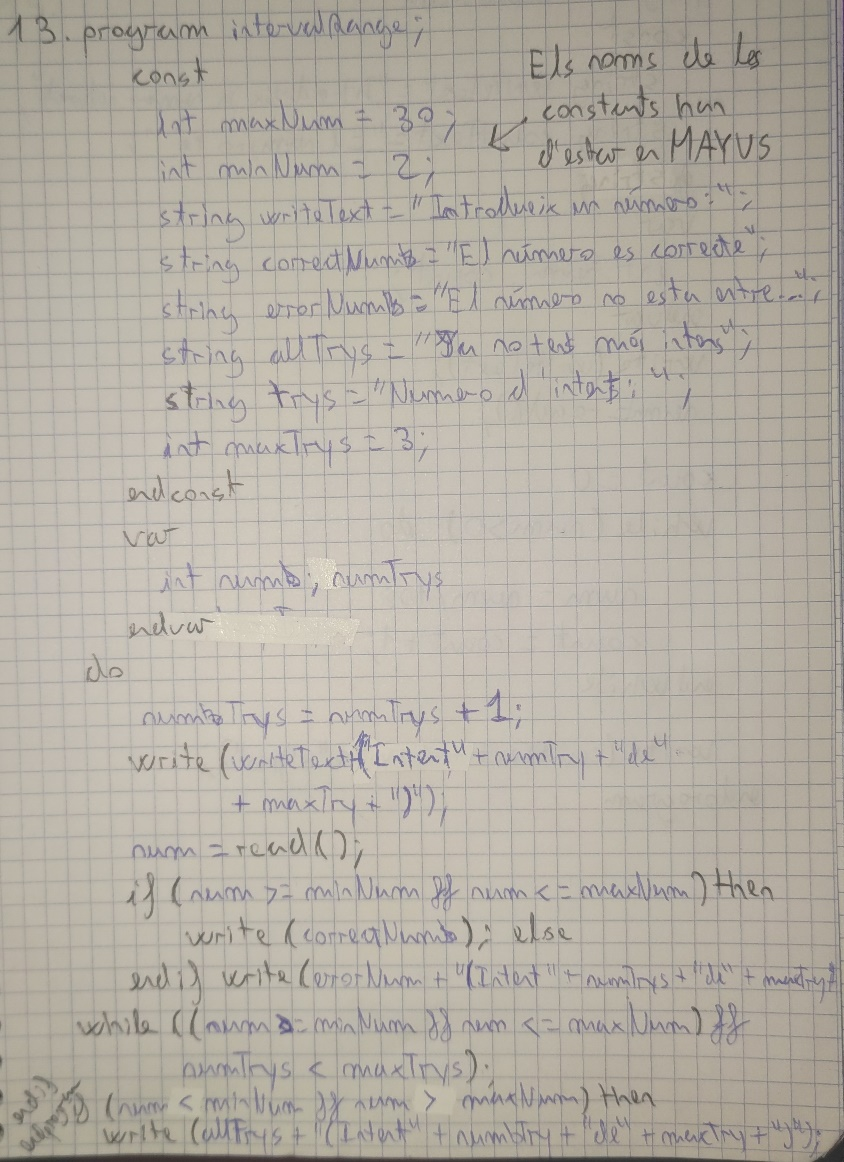 13. program intervalRange;
const
Els noms de les
constants han
d'estar en MAYUS
int maxNum = 30;
int minNum = 2;
string writeText = "Introdueix un número:";
string correctNum = "El número es correcte";
string errorNum = "El número no esta entre...";
string allTrys = "Ja no tens més intens";
string trys = "Numero d'intents: ";
int maxTrys = 3;
endconst
var
int num, numTrys
endvar
do
numTrys = numTrys + 1;
write (writeText+"(Intent" + numTry + "de"
+ maxTry + ")");
num = read();
if (num >= minNum && num <= maxNum) then
write (correctNum); else
endif write (errorNum + "(Intent" + numTrys + "de" + maxTry+
while ((num >= minNum && num <= maxNum) &&
numTrys < maxTrys);
if (num < minNum && num > maxNum) then
write (allTrys + "(Intent" + numTry + "de" + maxTry + ")");
endif
endprogram